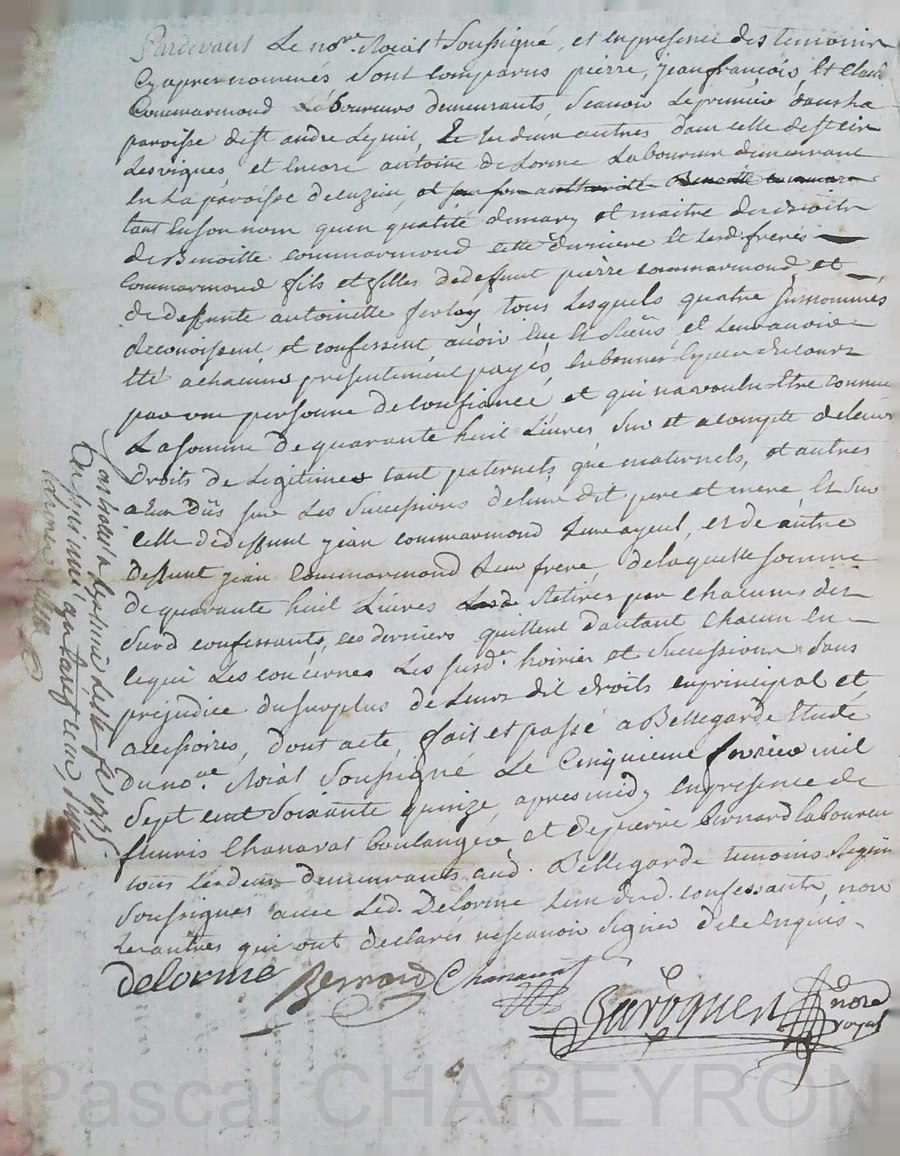 Pardevant Le no.re Roial Soussigné, et en presence des temoins
Cy apres nommés sont comparus pierre, jean françois, Et
Commarmond Laboureurs demeurants, scavoir Le premier dans la
paroisse de st andre Le puit, Et les deux autres dans celle de st cir
Les vignes, et Encore antoine de Lorme Laboureur demeurant
En La paroisse de
tant En son nom qu'en qualité de mary et maitre des droits
de Benoitte commarmond cette derniere Et lesd freres
Commarmond fils et filles de deffunt pierre commarmond et
de deffunte antoinette tous Lesquels quatre surnommés
Reconoissent et confessent avoir Eue Et Receus et Leur avoir
Eté a chacun presentement payés, En bonnes Especes de cours
par une personne de confiance et qui n'a voulu Etre connue
La somme de quarante huit Livres sur et a compte de leurs
droits de Legitimes tant paternels, que maternels, et autres
a Eux dûs sur Les successions de Leur dit pere et mere Et sur
Celle de deffunt jean commarmond Leur ayeul, et de autre
deffunt jean Commarmond Leur frere, de laquelle somme
de quarante huit Livres Retirée par chacuns des
surd confessants, ces derniers quittent d'autant chacun En
ce qui Les concernes Les susd. hoiries et successions sans
prejudice du surplus de Leurs dit droits en principal et
accessoires, dont acte, fait et passé a Bellegarde Etude
du no.re Roial soussigné Le Cinquieme fevrier mil
sept cent soixante quinze, apres midy En presence de
fleuris Chanavat boulanger et de pierre Bernard laboureur
tous Les deux demeurants aud. Bellegarde temoins Requis
soussignes avec Led. Delorme L'un desd. confessants, non
Les autres qui ont declarés ne scavoir signer de ce Enquis
delorme Bernard Chanavat
nore
royal
Pascal CHAREYRON